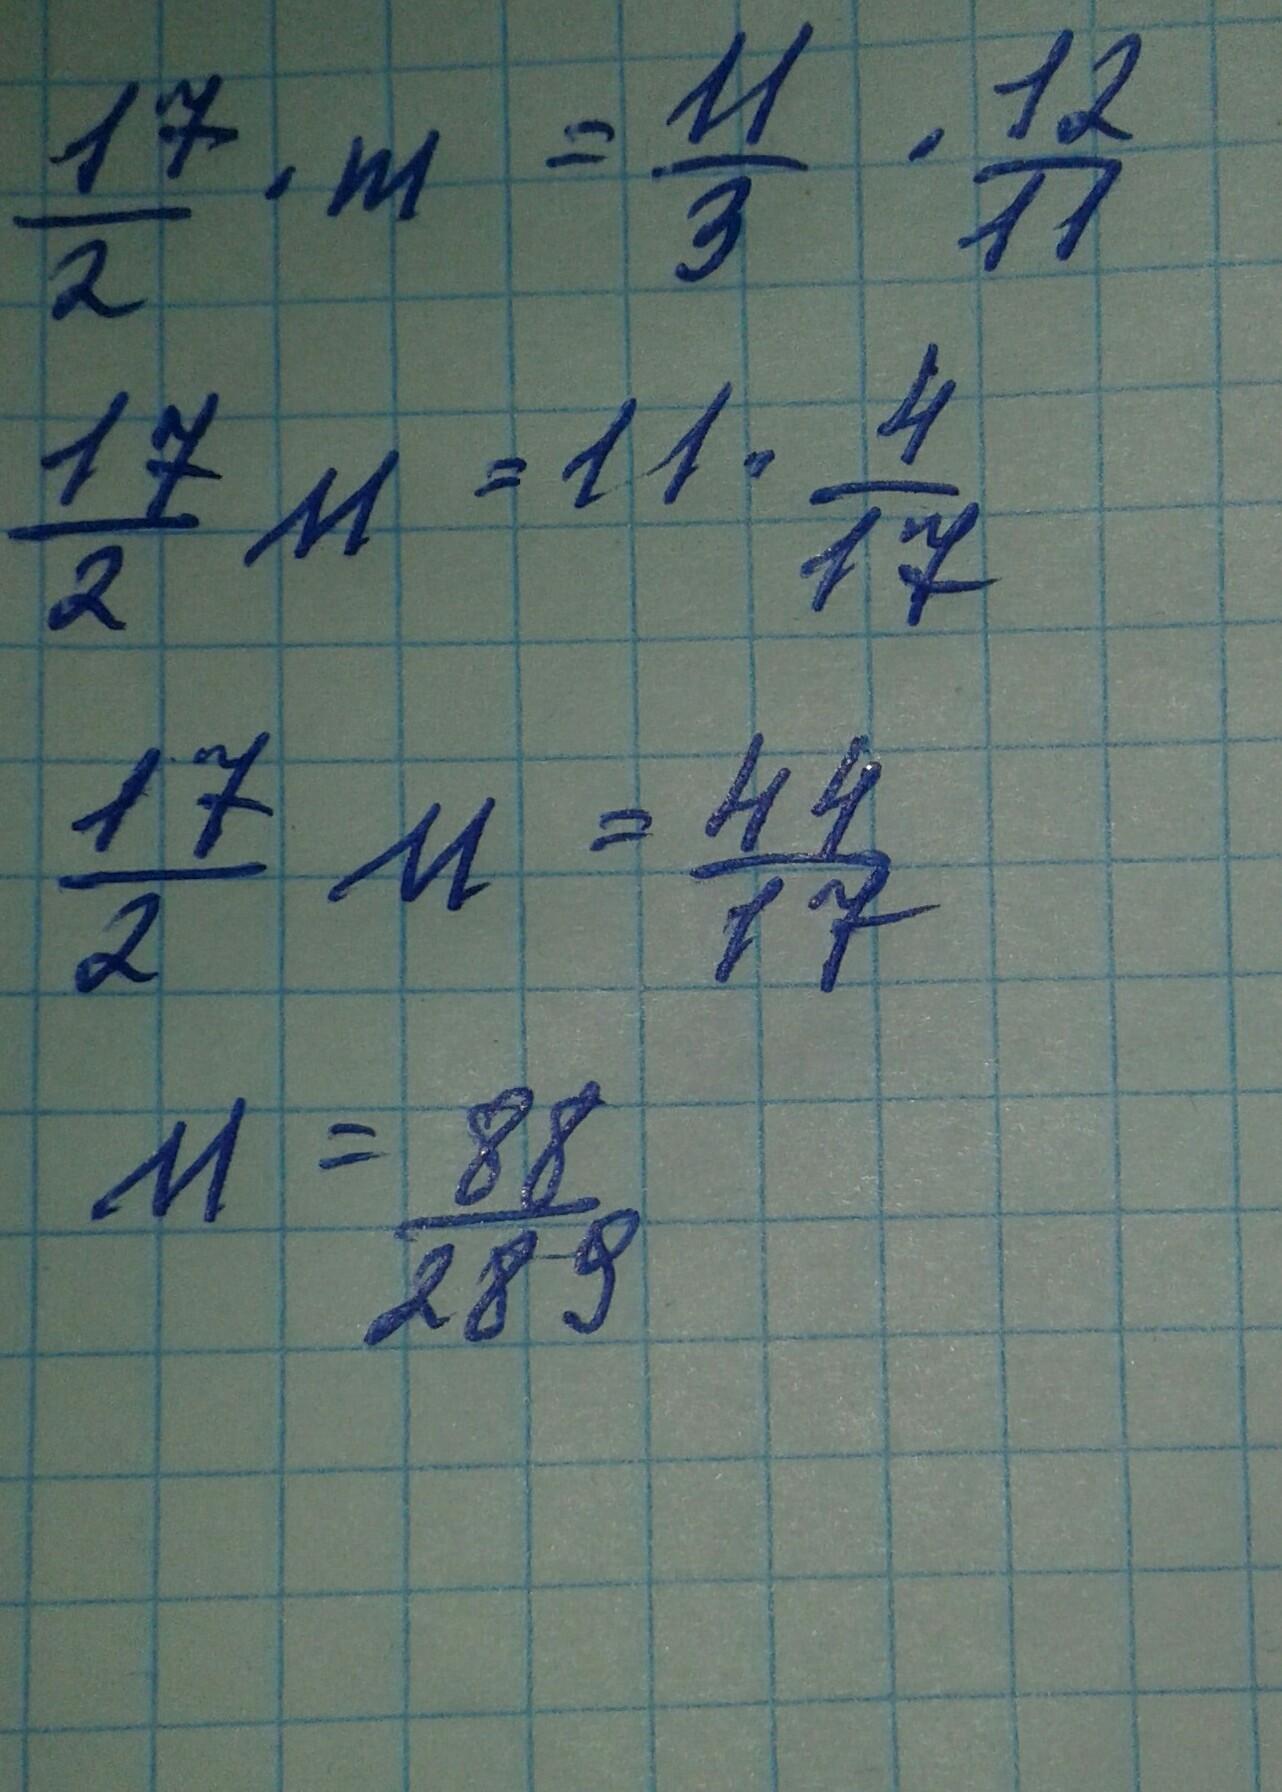 17/2 · m = 11/3 · 12/11
17/2 м = 11 · 4/17
17/2 м = 44/17
м = 88/289